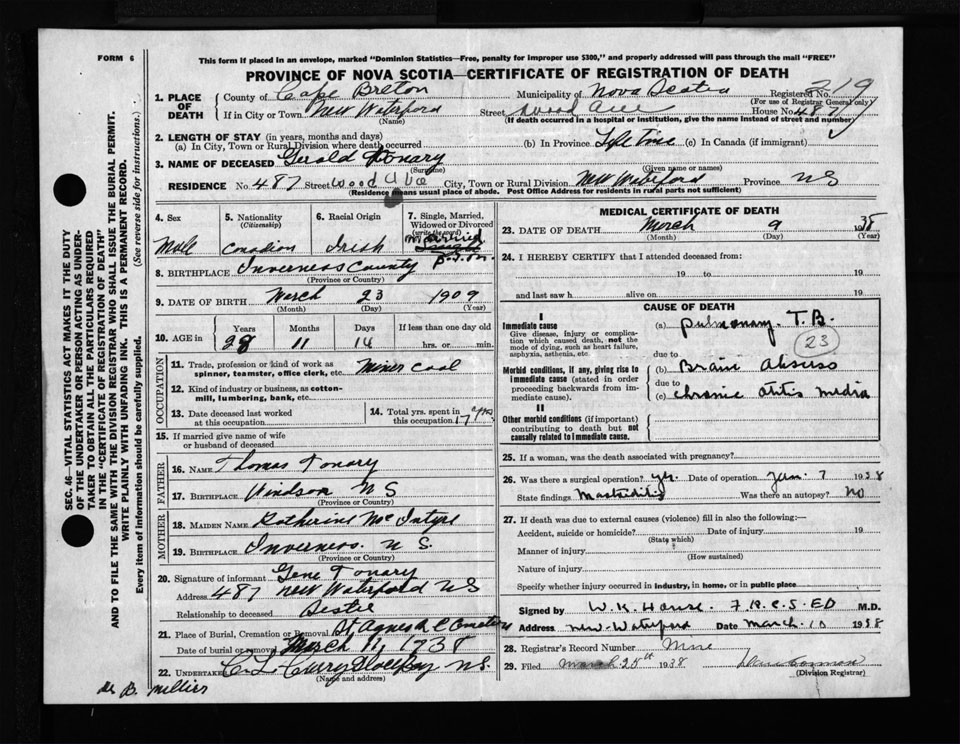 FORM 6
This form if placed in an envelope, marked "Dominion Statistics—Free, penalty for improper use $300," and properly addressed will pass through the mail "FREE"
PROVINCE OF NOVA SCOTIA—CERTIFICATE OF REGISTRATION OF DEATH
SEC. 46—VITAL STATISTICS ACT MAKES IT THE DUTY
OF THE UNDERTAKER OR PERSON ACTING AS UNDER-
TAKER TO OBTAIN ALL THE PARTICULARS REQUIRED
IN THE "CERTIFICATE OF REGISTRATION OF DEATH"
AND TO FILE THE SAME WITH THE DIVISION REGISTRAR WHO SHALL ISSUE THE BURIAL PERMIT.
WRITE PLAINLY WITH UNFADING INK. THIS IS A PERMANENT RECORD.
Every item of information should be carefully supplied. (See reverse side for instructions).
1. PLACE OF DEATH County of Cape Breton Municipality of Nova Scotia Registered No. 219
(For use of Registrar General only)
If in City or Town New Waterford Street Wood Ave House No. 487
(Name) (If death occurred in a hospital or institution, give the name instead of street and number)
2. LENGTH OF STAY (in years, months and days)
(a) In City, Town or Rural Division where death occurred (b) In Province Life time (c) In Canada (if immigrant)
3. NAME OF DECEASED Gerald Tonary
(Surname) (Given name or names)
RESIDENCE No. 487 Street Wood Ave City, Town or Rural Division New Waterford Province NS
(Residence means usual place of abode. Post Office Address for residents in rural parts not sufficient)
4. Sex Male
5. Nationality (Citizenship) Canadian
6. Racial Origin Irish
7. Single, Married, Widowed or Divorced (write the word) Married
8. BIRTHPLACE Inverness County
(Province or Country)
9. DATE OF BIRTH March 23 1909
(Month) (Day) (Year)
10. AGE in Years 28 Months 11 Days 14 If less than one day old hrs. or min.
OCCUPATION
11. Trade, profession or kind of work as spinner, teamster, office clerk, etc. Miner coal
12. Kind of industry or business, as cotton-mill, lumbering, bank, etc.
13. Date deceased last worked at this occupation
14. Total yrs. spent in this occupation 17 yrs
15. If married give name of wife or husband of deceased
FATHER
16. NAME Thomas Tonary
17. BIRTHPLACE Windsor N S
(Province or Country)
MOTHER
18. MAIDEN NAME Katherine McIntyre
19. BIRTHPLACE Inverness. N S.
(Province or Country)
20. Signature of informant Gene Tonary
Address 487 New Waterford NS
Relationship to deceased
21. Place of Burial, Cremation or Removal St Agnes
Date of burial or removal March 11, 1938
22. UNDERTAKER C. L. Curry NS.
(Name and address)
MEDICAL CERTIFICATE OF DEATH
23. DATE OF DEATH March 9 1938
(Month) (Day) (Year)
24. I HEREBY CERTIFY that I attended deceased from:
19 to 19
and last saw h alive on 19
CAUSE OF DEATH
I
Immediate cause
Give disease, injury or complication which caused death, not the mode of dying, such as heart failure, asphyxia, asthenia, etc
(a) Pulmonary T.B.
23
due to
Morbid conditions, if any, giving rise to immediate cause (stated in order proceeding backwards from immediate cause).
(b) Brain Abscess
due to
(c) chronic otitis media
II
Other morbid conditions (if important) contributing to death but not causally related to immediate cause.
25. If a woman, was the death associated with pregnancy?
26. Was there a surgical operation? yes. Date of operation Jan 7 1938
State findings Mastoiditis Was there an autopsy? NO
27. If death was due to external causes (violence) fill in also the following:—
Accident, suicide or homicide? Date of injury 19
(State which)
Manner of injury
(How sustained)
Nature of injury
Specify whether injury occurred in industry, in home, or in public place
Signed by W. K. House. F.R.C.S. ED M.D.
Address New Waterford Date March 10 1938
28. Registrar's Record Number
29. Filed March 25th 1938
(Division Registrar)